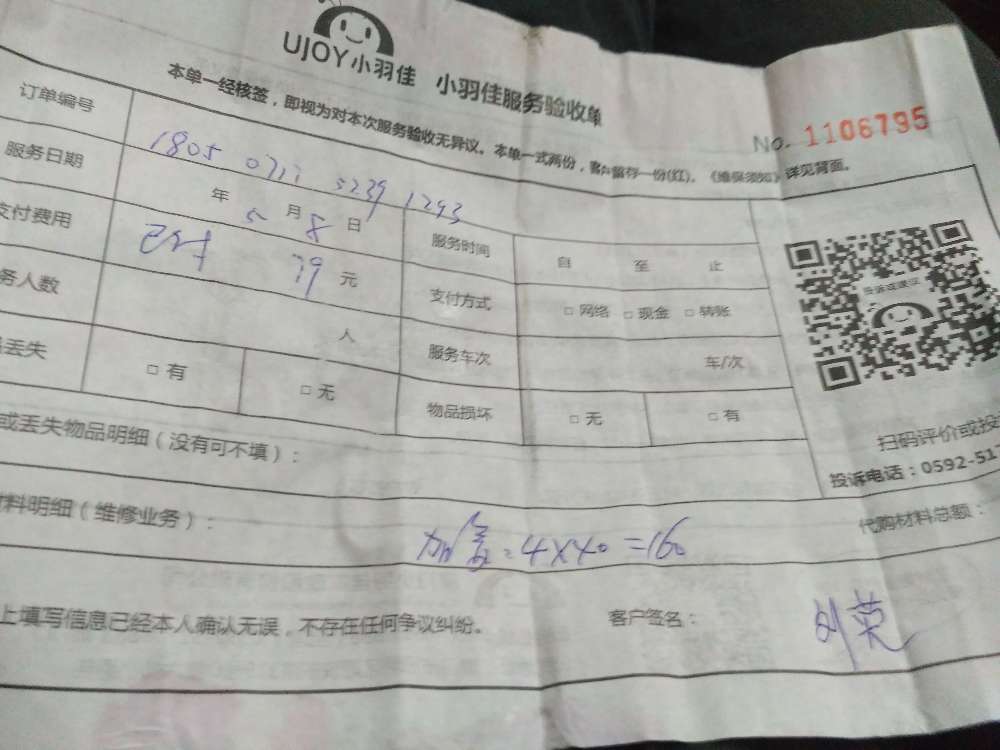 UJOY小羽佳 小羽佳服务验收单
本单一经核签，即视为对本次服务验收无异议。本单一式两份，客户留存一份(红)。《维保须知》详见背面。
No. 1106795
订单编号 1805 3239 1293
服务日期 年 5 月 8 日 服务时间 自 至 止
支付费用 已付 79 元 支付方式 □ 网络 □ 现金 □ 转账
务人数 人 服务车次 车/次
丢失 □ 有 □ 无 物品损坏 □ 无 □ 有
投诉或建议
扫码评价或投
投诉电话：0592-517
或丢失物品明细（没有可不填）：
料明细（维修业务）： 代购材料总额：
4X40=160
上填写信息已经本人确认无误，不存在任何争议纠纷。 客户签名：
刘英